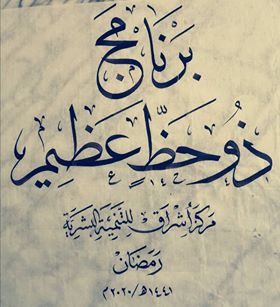 برنامج
ذُو حَظٍّ عَظِيمٍ
مركز إشراق للتنمية البشرية
رمضان
١٤٤١هـ/٢٠٢٠م